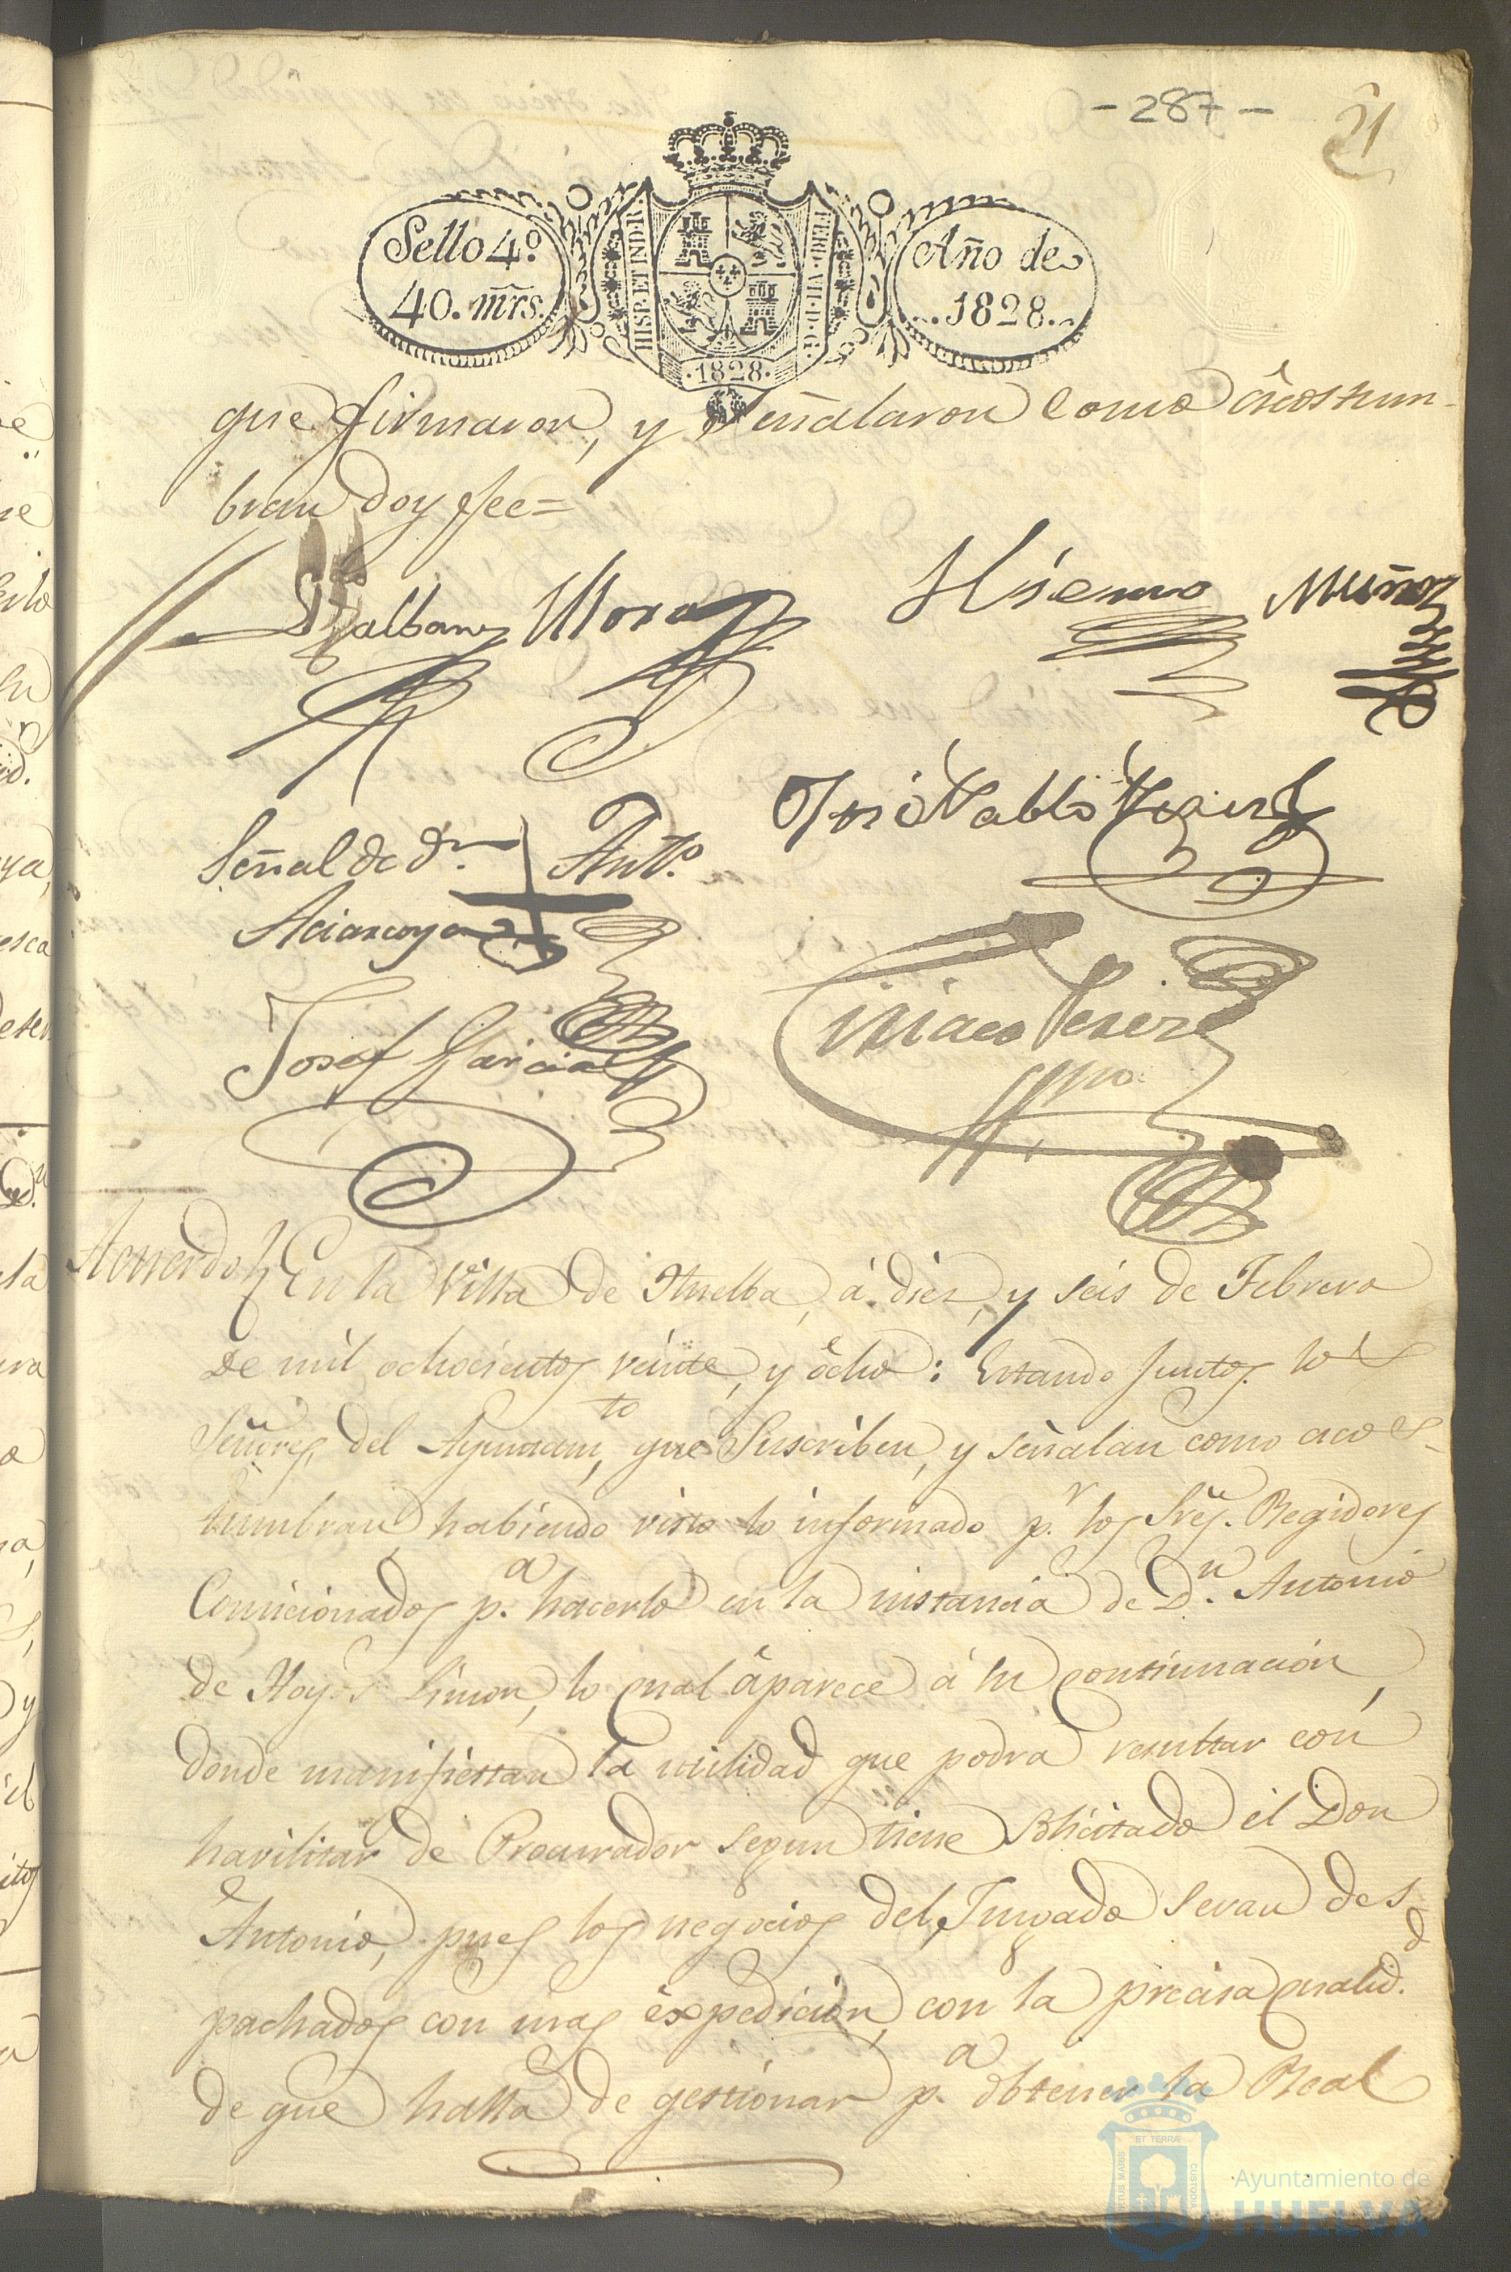 - 287 -
21
Sello 4.º
40. mrs.
HISP. ET IND. R.
FERD. VII. D. G.
· 1828 ·
Año de
1828.
que firmaron, y señalaron como âcostum-
bran doy fee=
Mora
Muñoz
José Pablo Perez
Señal de dn. + Anto.
Aciancoya
Josef Garcia
Ciriaco Perez
Acuerdo
En la Villa de Huelba, á diez, y seis de Febrero
de mil ochocientos veinte, y ôcho: Estando juntos los
Señores del Ayuntamto, que suscriben, y señalan como acos-
tumbran, habiendo visto lo informado pr. los Sres. Regidores
Comicionados pa. hacerlo en la instancia de Dn. Antonio
de Limon, lo cual âparece á su continuación,
donde manifiestan la utilidad que podra resultar con
havilitar de Procurador segun tiene solicitado el Don
Antonio, pues los negocios del Juzgado seran des-
pachados con mas êxpedición, con la precisa cualidd.
de que halla de gestionar pa. obtener la Real
ET TERRÆ
PORTUS MARIS
CUSTODIA
Ayuntamiento de
HUELVA